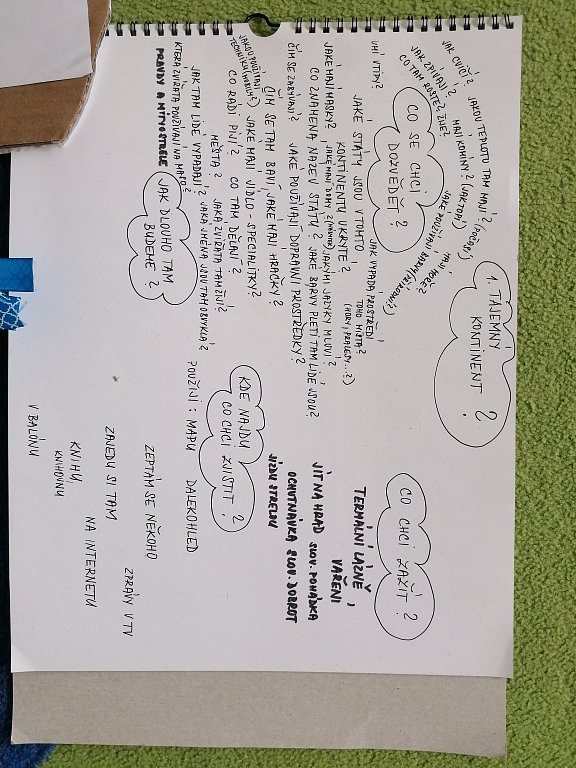 1. TAJEMNÝ
KONTINENT ?
CO SE CHCI
DOZVĚDĚT ?
JAK CVIČÍ ?
JAK ZPÍVAJÍ ?
CO TAM ROSTE ?
JAKOU TEPLOTU TAM MAJÍ ? (POČASÍ)
MAJÍ KOMÍNY ?
MAJÍ
MOŘE ?
UMÍ VTIPY ?
JAK VYPADÁ PROSTŘEDÍ
TOHO MÍSTA ?
(HORY, PRALESY...?)
JAKÉ STÁTY JSOU V TOMTO
KONTINENTU UKRYTÉ ?
JAKÉ MAJÍ MASKY ?
JAKÉ MAJÍ DOMY ?
JAKÝMI JAZYKY MLUVÍ ?
CO ZNAMENÁ NÁZEV STÁTU ? JAKÉ BARVY PLETÍ TAM LIDÉ JSOU ?
ČÍM SE ZABÝVAJÍ ? JAKÉ POUŽÍVAJÍ DOPRAVNÍ PROSTŘEDKY ?
ČÍM SE TAM BAVÍ, JAKÉ MAJÍ HRAČKY ?
JAKÉ MAJÍ JÍDLO - SPECIALITKY ?
CO RÁDI PIJÍ ? CO TAM DĚLAJÍ ?
MĚSTA ? JAKÁ ZVÍŘATA TAM ŽIJÍ ?
JAK TAM LIDÉ VYPADAJÍ ? JAKÁ JMÉNA JSOU TAM OBVYKLÁ ?
KTERÁ ZVÍŘATA POUŽÍVAJÍ NA MASO ?
PRAVDY A MÝTY O STRELE
JAK DLOUHO TAM
BUDEME ?
CO CHCI ZAŽÍT ?
TERMÁLNÍ LÁZNĚ
VAŘENÍ
JÍT NA HRAD SLOV. POHÁDKA
OCHUTNÁVKA SLOV. DOBROT
JÍZDU STRELOU
KDE NAJDU
CO CHCI ZJISTIT ?
POUŽIJI : MAPU DALEKOHLED
ZEPTÁM SE NĚKOHO
ZPRÁVY V TV
ZAJEDU SI TAM
NA INTERNETU
KNIHU,
KNIHOVNU
V BALÓNU